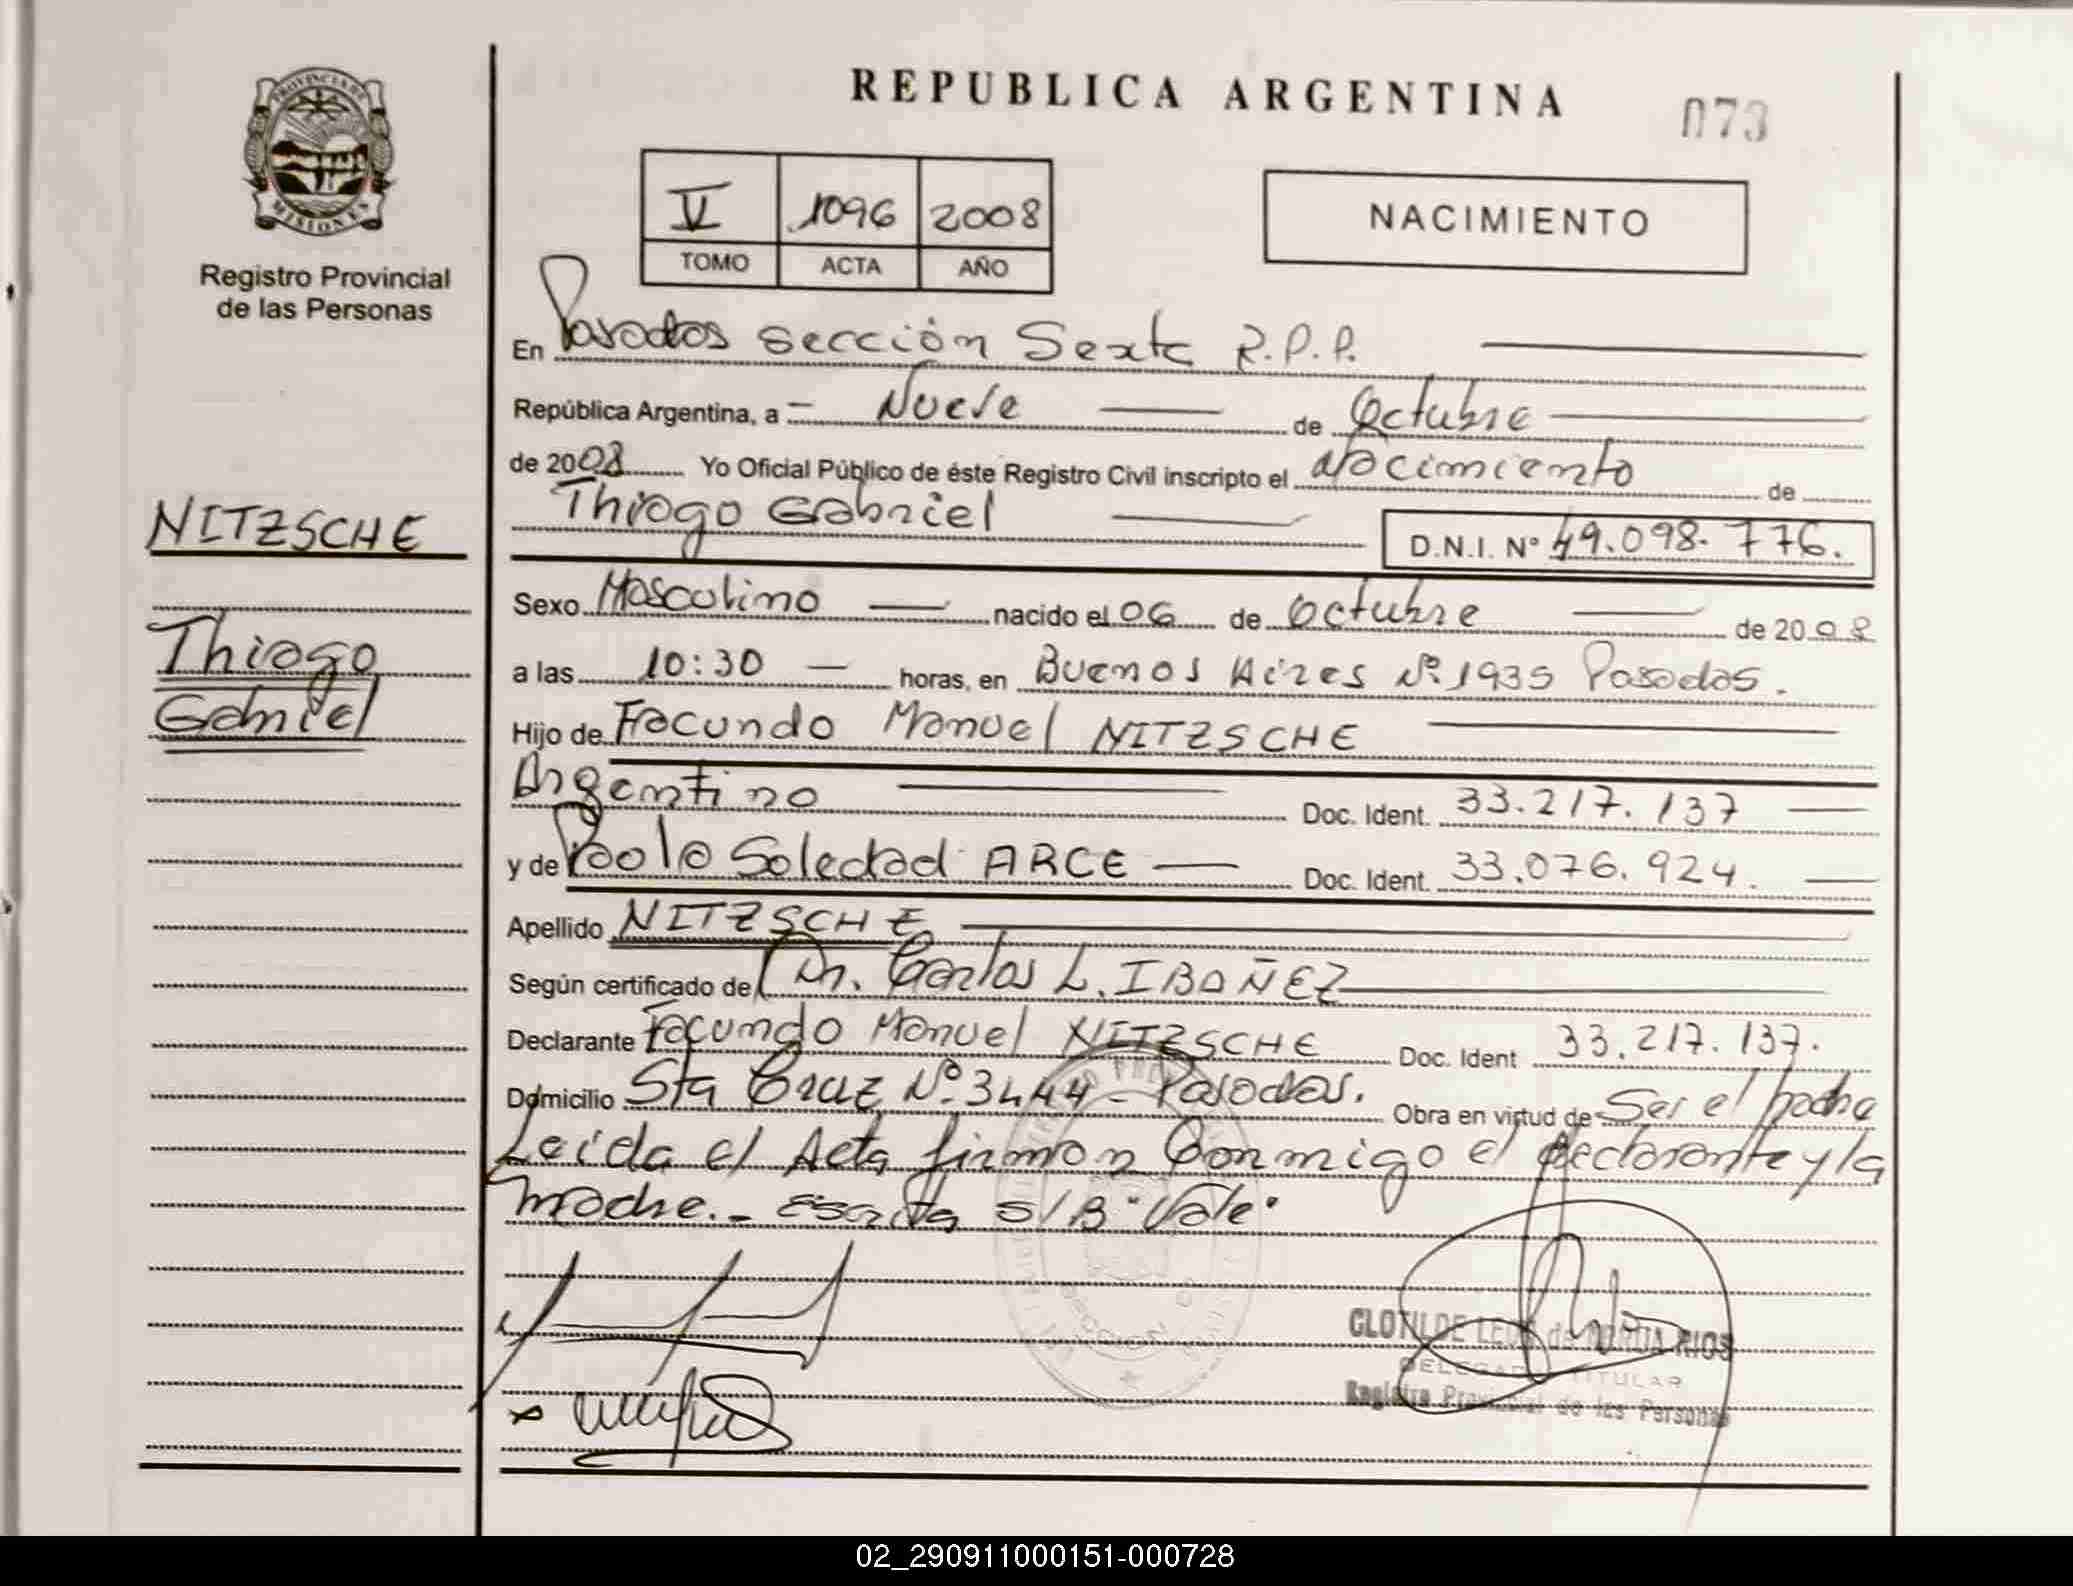 REPUBLICA ARGENTINA
073
PROVINCIA DE
MISIONES
Registro Provincial
de las Personas
V 1096 2008
TOMO ACTA AÑO
NACIMIENTO
En Posadas sección Sexta R.P.P.
República Argentina, a – Nueve de Octubre
de 2008 Yo Oficial Público de éste Registro Civil inscripto el nacimiento de
Thiago Gabriel D.N.I. Nº 49.098.776.
NITZSCHE
Thiago
Gabriel
Sexo Masculino nacido el 06 de Octubre de 2008
a las 10:30 — horas, en Buenos Aires Nº 1935 Posadas.
Hijo de Facundo Manuel NITZSCHE
Argentino Doc. Ident. 33.217.137
y de Paola Soledad ARCE Doc. Ident. 33.076.924.
Apellido NITZSCHE
Según certificado de Dr. Carlos L. IBAÑEZ
Declarante Facundo Manuel NITZSCHE Doc. Ident 33.217.137.
Domicilio Sta Cruz Nº 3444 - Posadas. Obra en virtud de Ser el padre
Leída el Acta firman Conmigo el declarante y la
madre.- Escrita S/B "Vale"
CLOTILDE de RIOS
DELEGADA TITULAR
Registro Provincial de las Personas
02_290911000151-000728